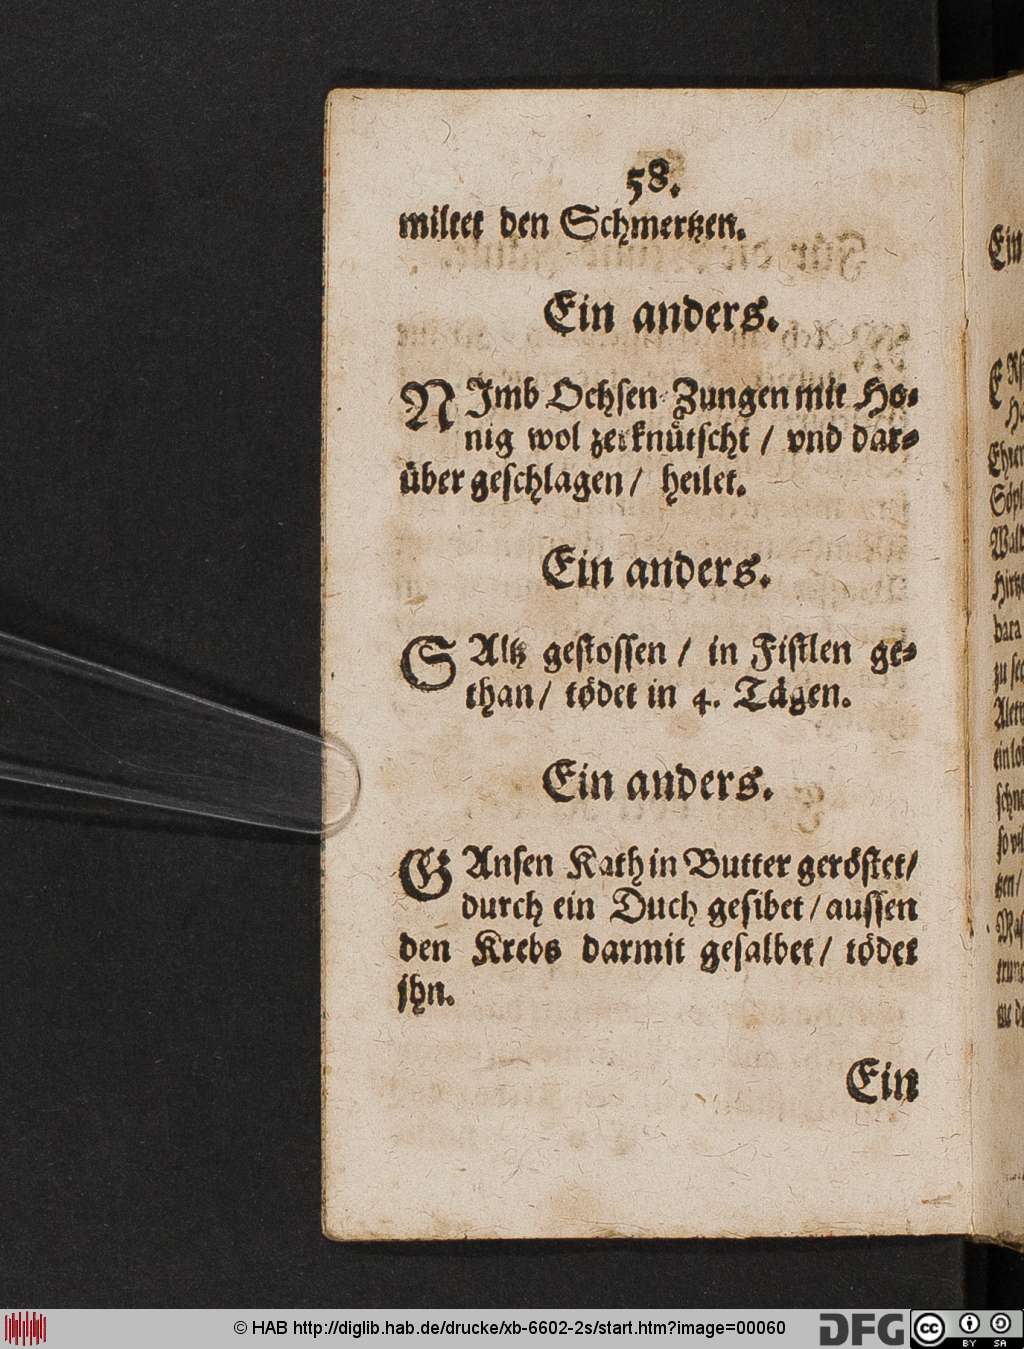 58.
miltet den Schmertzen.
Ein anders.
NImb Ochsen Zungen mit Ho-
nig wol zerknütscht / vnd dar-
über geschlagen / heilet.
Ein anders.
SAltz gestossen / in Fistlen ge-
than / tödet in 4. Tägen.
Ein anders.
GAnsen Kath in Butter geröstet /
durch ein Duch gesibet / aussen
den Krebs darmit gesalbet / tödet
jhn.
Ein
© HAB http://diglib.hab.de/drucke/xb-6602-2s/start.htm?image=00060
DFG
cc BY SA